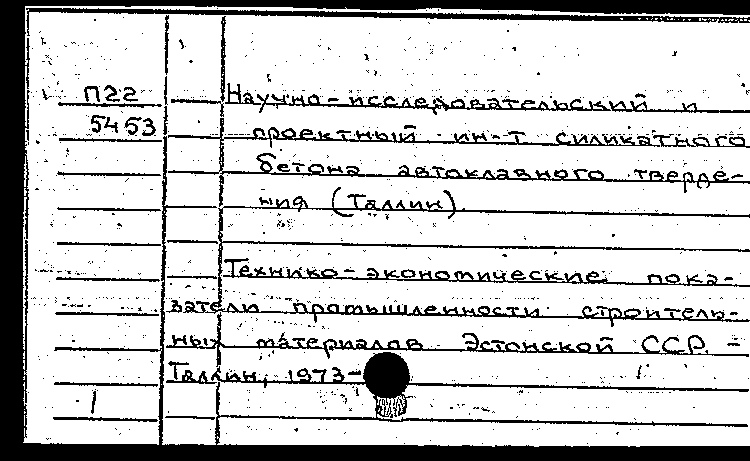 П22
5453
Научно-исследовательский и
проектный ин-т силикатного
бетона автоклавного тверде-
ния (Таллин).
Технико-экономические пока-
затели промышленности строитель-
ных материалов Эстонской ССР. -
Таллин, 1973-